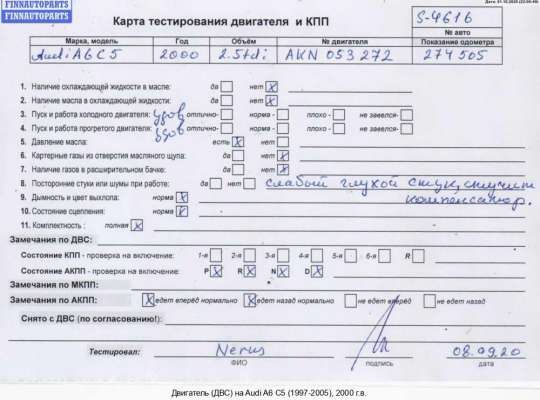 FINNAUTOPARTS
FINNAUTOPARTS
Дата: 01.10.2020
Карта тестирования двигателя и КПП
S-4616
№ авто
Марка, модель Год Объём № двигателя Показание одометра
Audi A6 C5 2000 2.5tdi AKN 053272 274505
1. Наличие охлаждающей жидкости в масле: да нет X
2. Наличие масла в охлаждающей жидкости: да нет X
3. Пуск и работа холодного двигателя: удов отлично- норма - плохо - не завелся-
4. Пуск и работа прогретого двигателя: удов отлично- норма - плохо - не завелся-
5. Давление масла: есть X нет
6. Картерные газы из отверстия масляного щупа: да нет X
7. Наличие газов в расширительном бачке: да нет X
8. Посторонние стуки или шумы при работе: да нет слабый глухой стук, стучит
9. Дымность и цвет выхлопа: норма X компенсатор.
10. Состояние сцепления: норма X
11. Комплектность : полная X
Замечания по ДВС:
Состояние КПП - проверка на включение: 1-я 2-я 3-я 4-я 5-я 6-я R
Состояние АКПП - проверка на включение: P X R X N X D X
Замечания по МКПП:
Замечания по АКПП: X едет вперёд нормально X едет назад нормально не едет вперёд не едет назад
Снято с ДВС (по согласованию!):
Тестировал: Nerus 08.09.20
ФИО подпись дата
Двигатель (ДВС) на Audi A6 C5 (1997-2005), 2000 г.в.